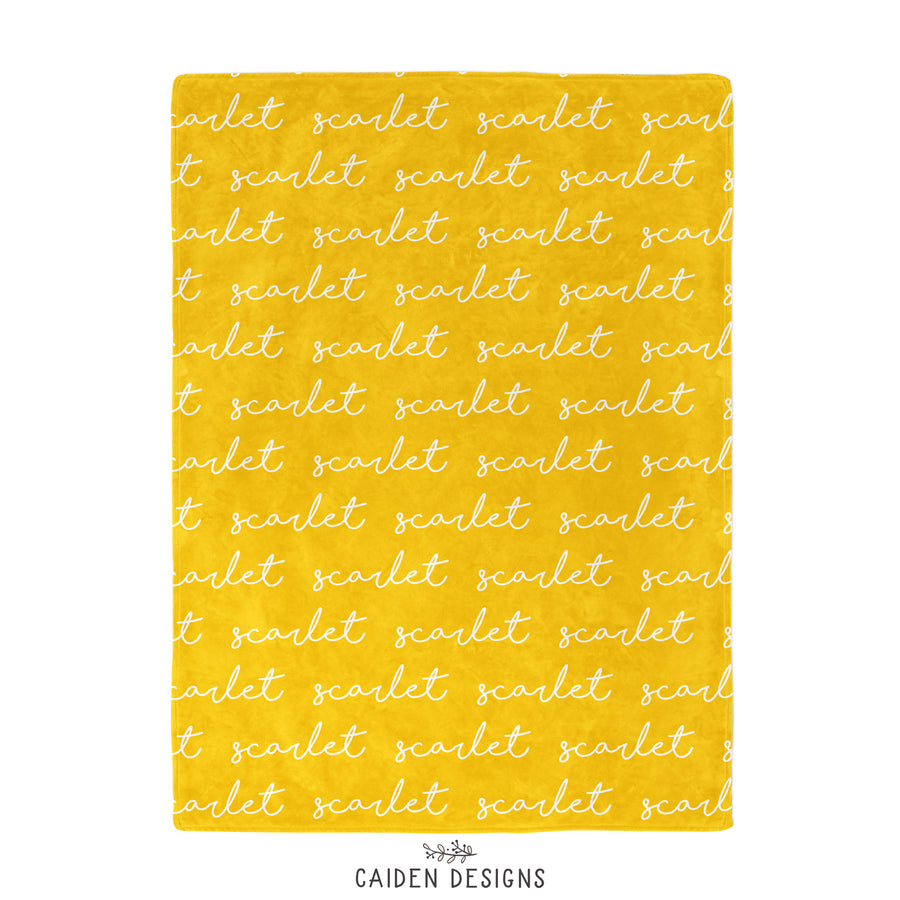 carlet scarlet scarlet scarl
t scarlet scarlet scarlet s
carlet scarlet scarlet scarl
t scarlet scarlet scarlet s
carlet scarlet scarlet scarl
t scarlet scarlet scarlet s
carlet scarlet scarlet scarl
t scarlet scarlet scarlet s
carlet scarlet scarlet scarl
t scarlet scarlet scarlet s
carlet scarlet scarlet scarl
t scarlet scarlet scarlet s
carlet scarlet scarlet scarl
CAIDEN DESIGNS